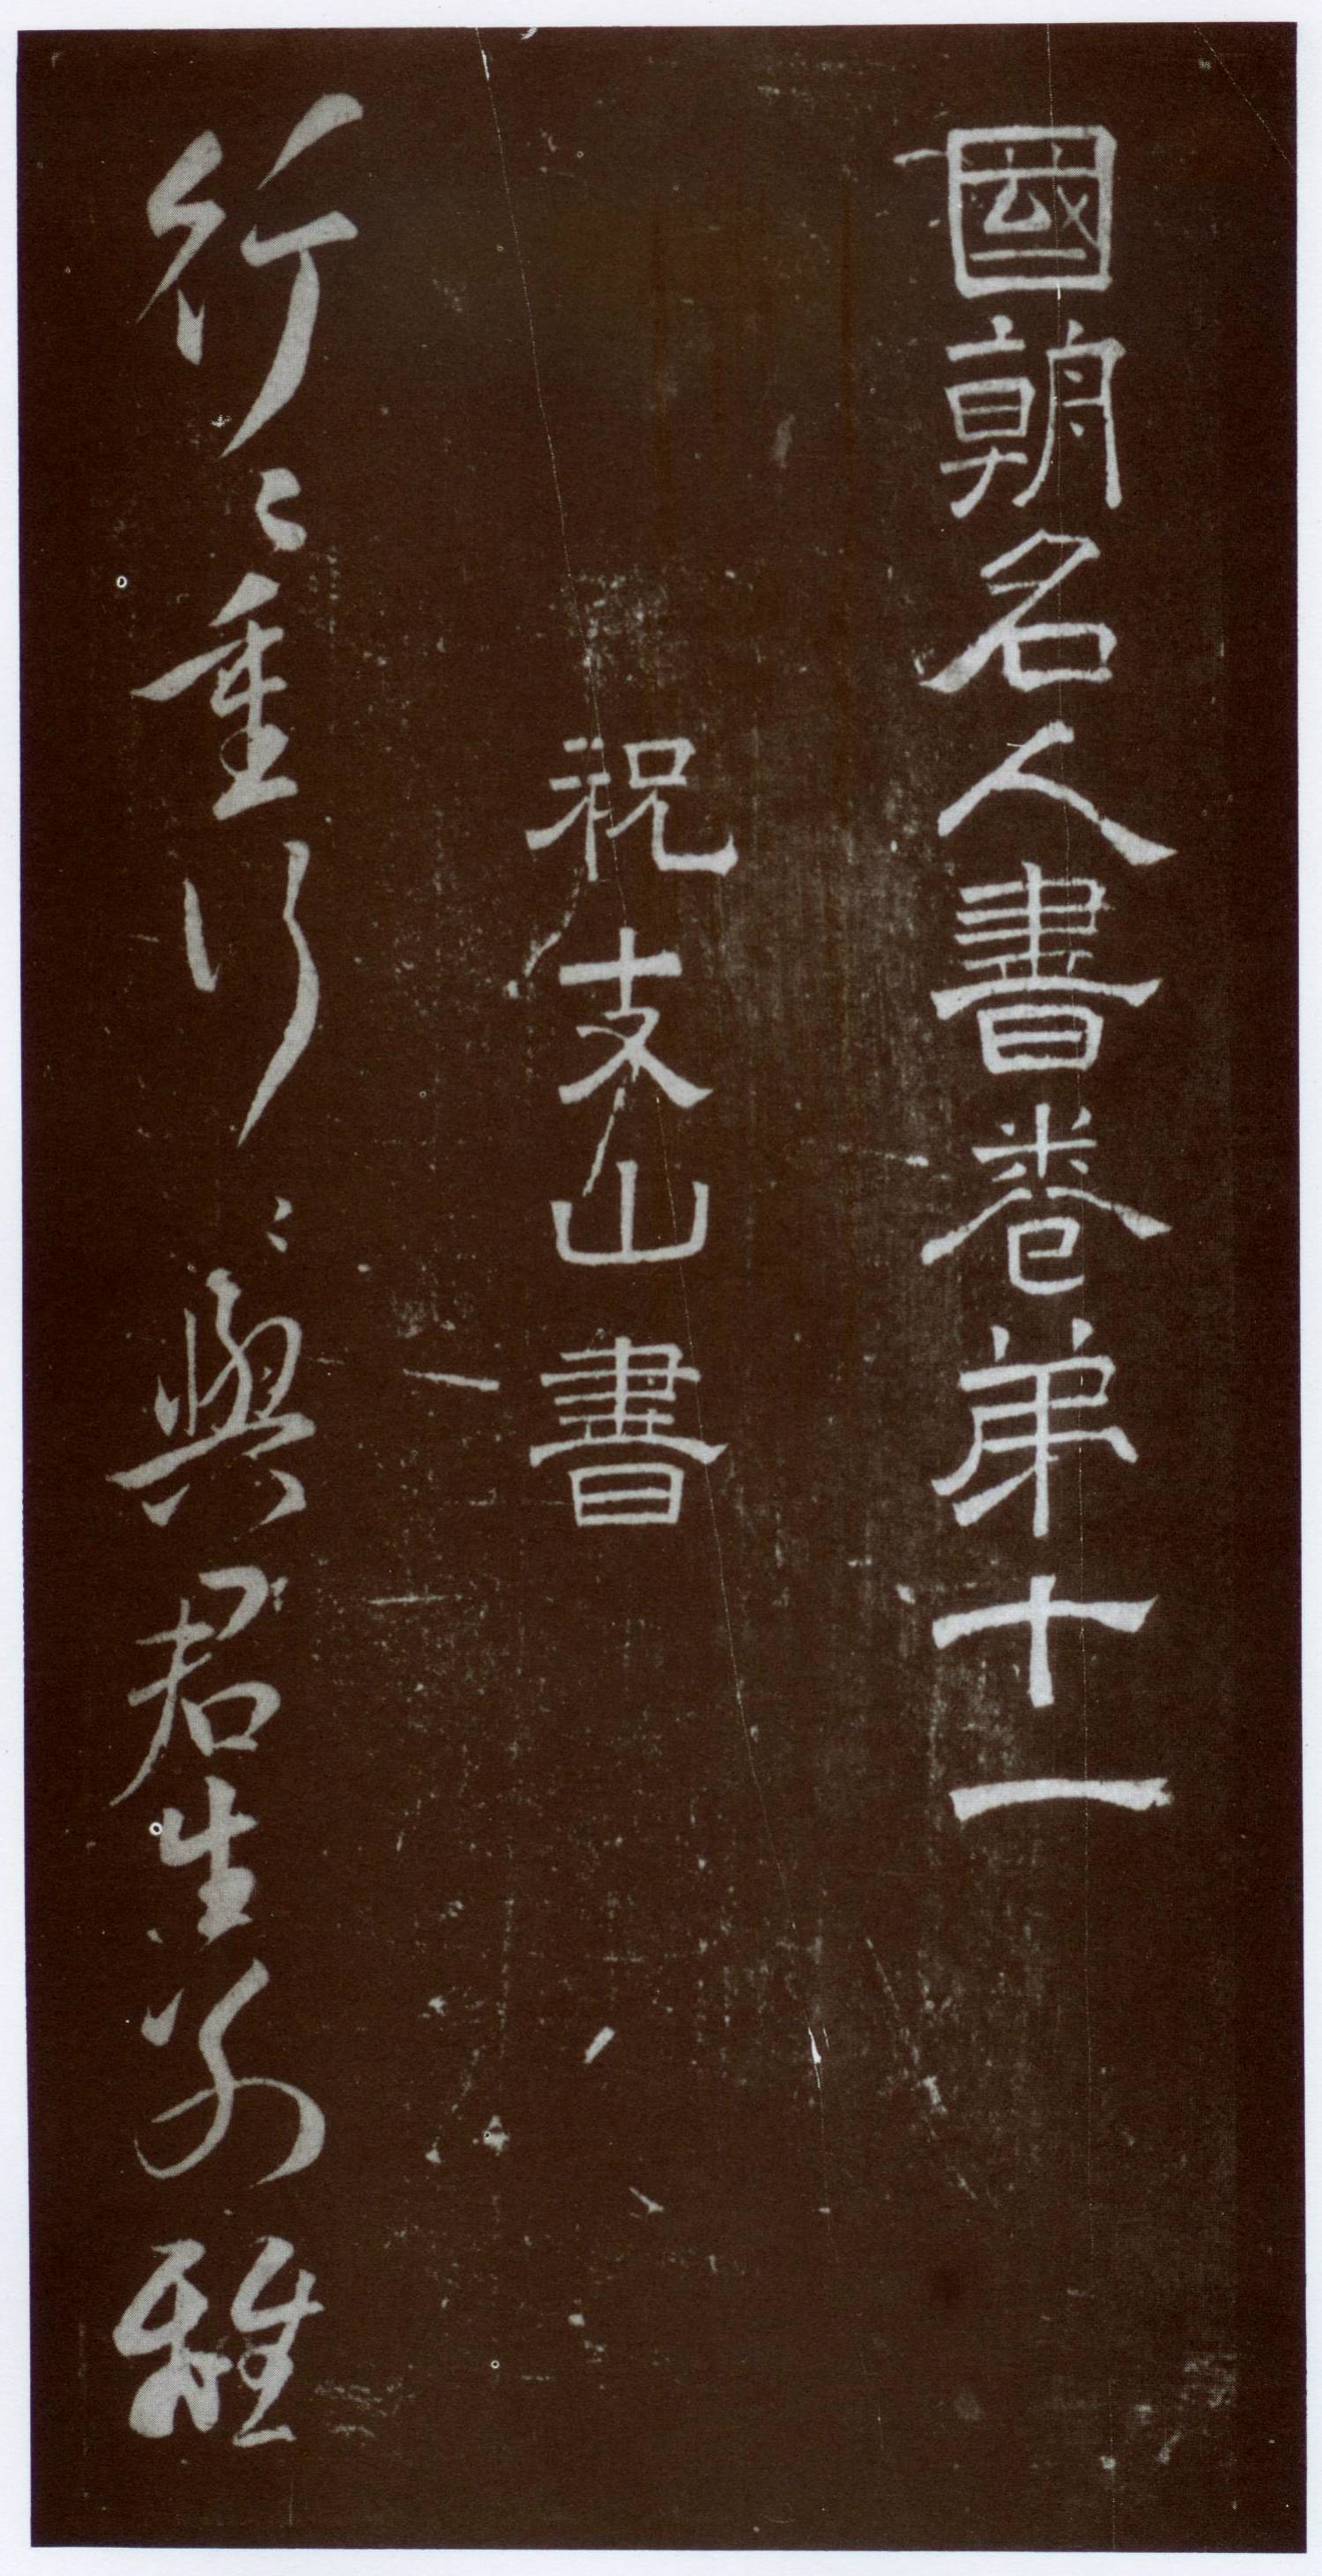 國朝名人書卷弟十一
祝支山書
行〻重行〻與君生別離